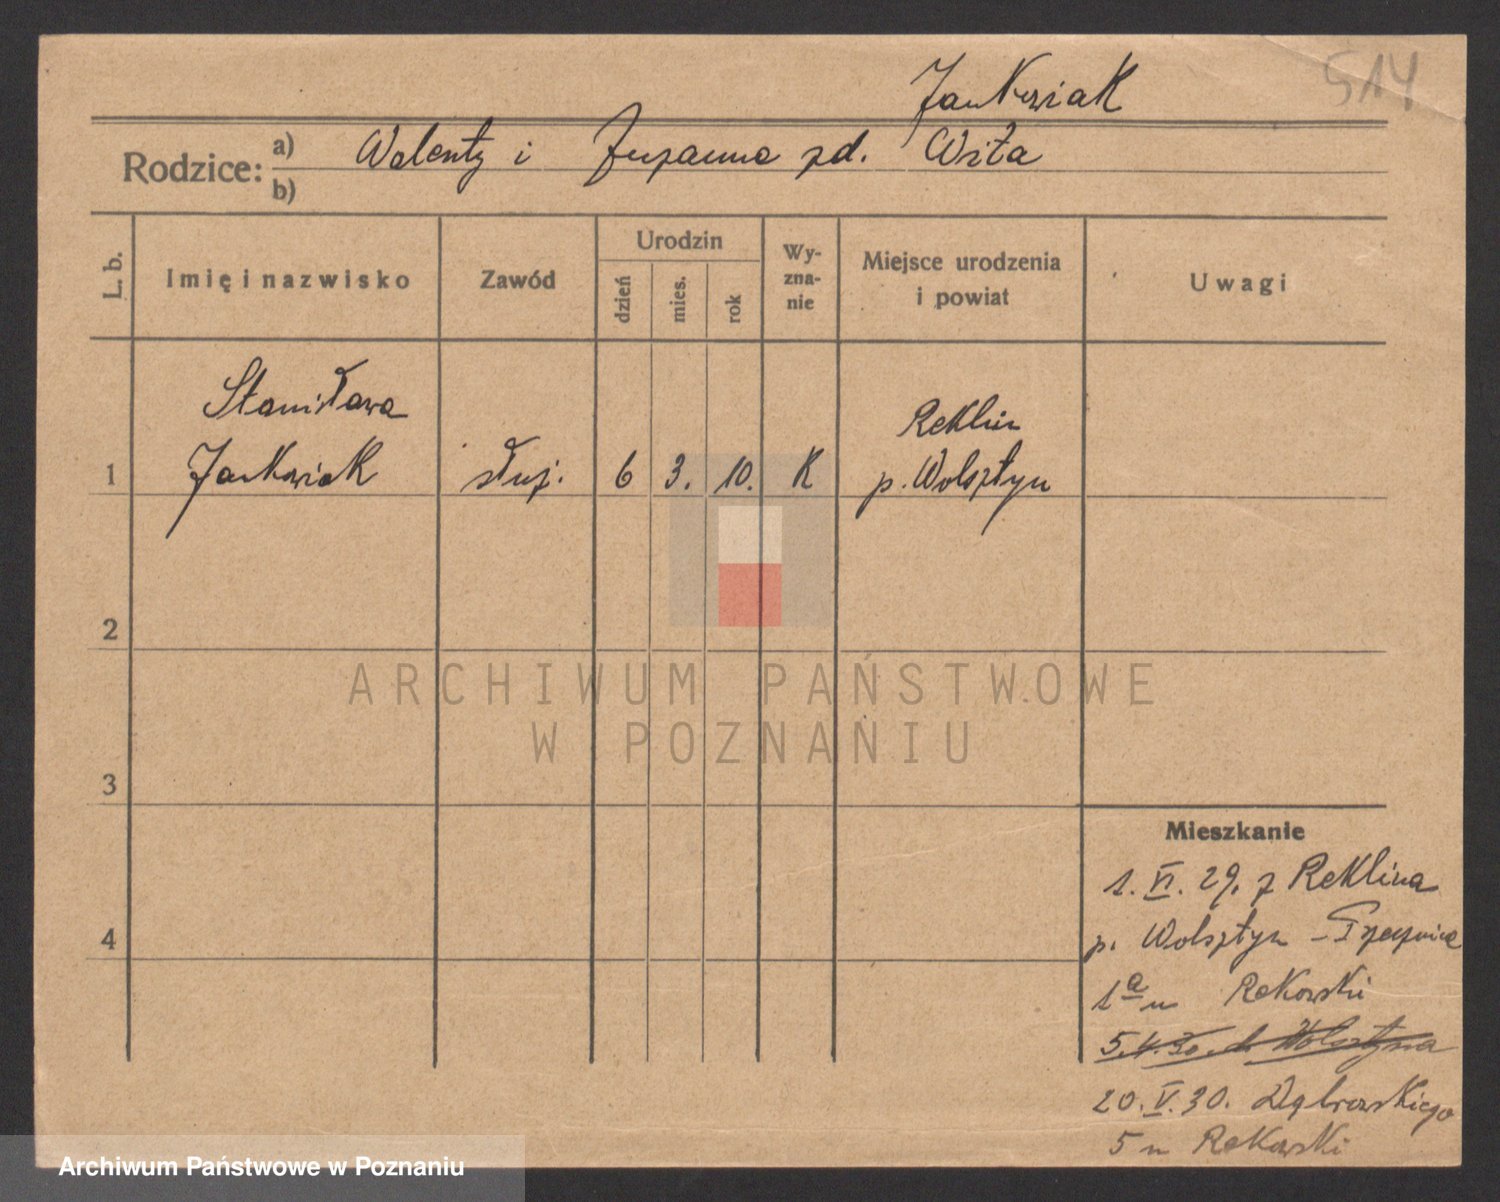 Jankowiak
514
Rodzice: a) Walenty i Zuzanna zd. Wita
b)
L. b.
Imię i nazwisko
Zawód
Urodzin
dzień
mies.
rok
Wy-
zna-
nie
Miejsce urodzenia
i powiat
Uwagi
Stanisława
1 Jankowiak służ. 6 3. 10. K
Reklin
p. Wolsztyn
2
3
4
Mieszkanie
1. VI. 29. z Reklina
p. Wolsztyn -
1a u Rakowski
5.4.30. d. Wolsztyna
20. V. 30. Dąbrowskiego
5 u Rakowski
ARCHIWUM PAŃSTWOWE
W POZNANIU
Archiwum Państwowe w Poznaniu